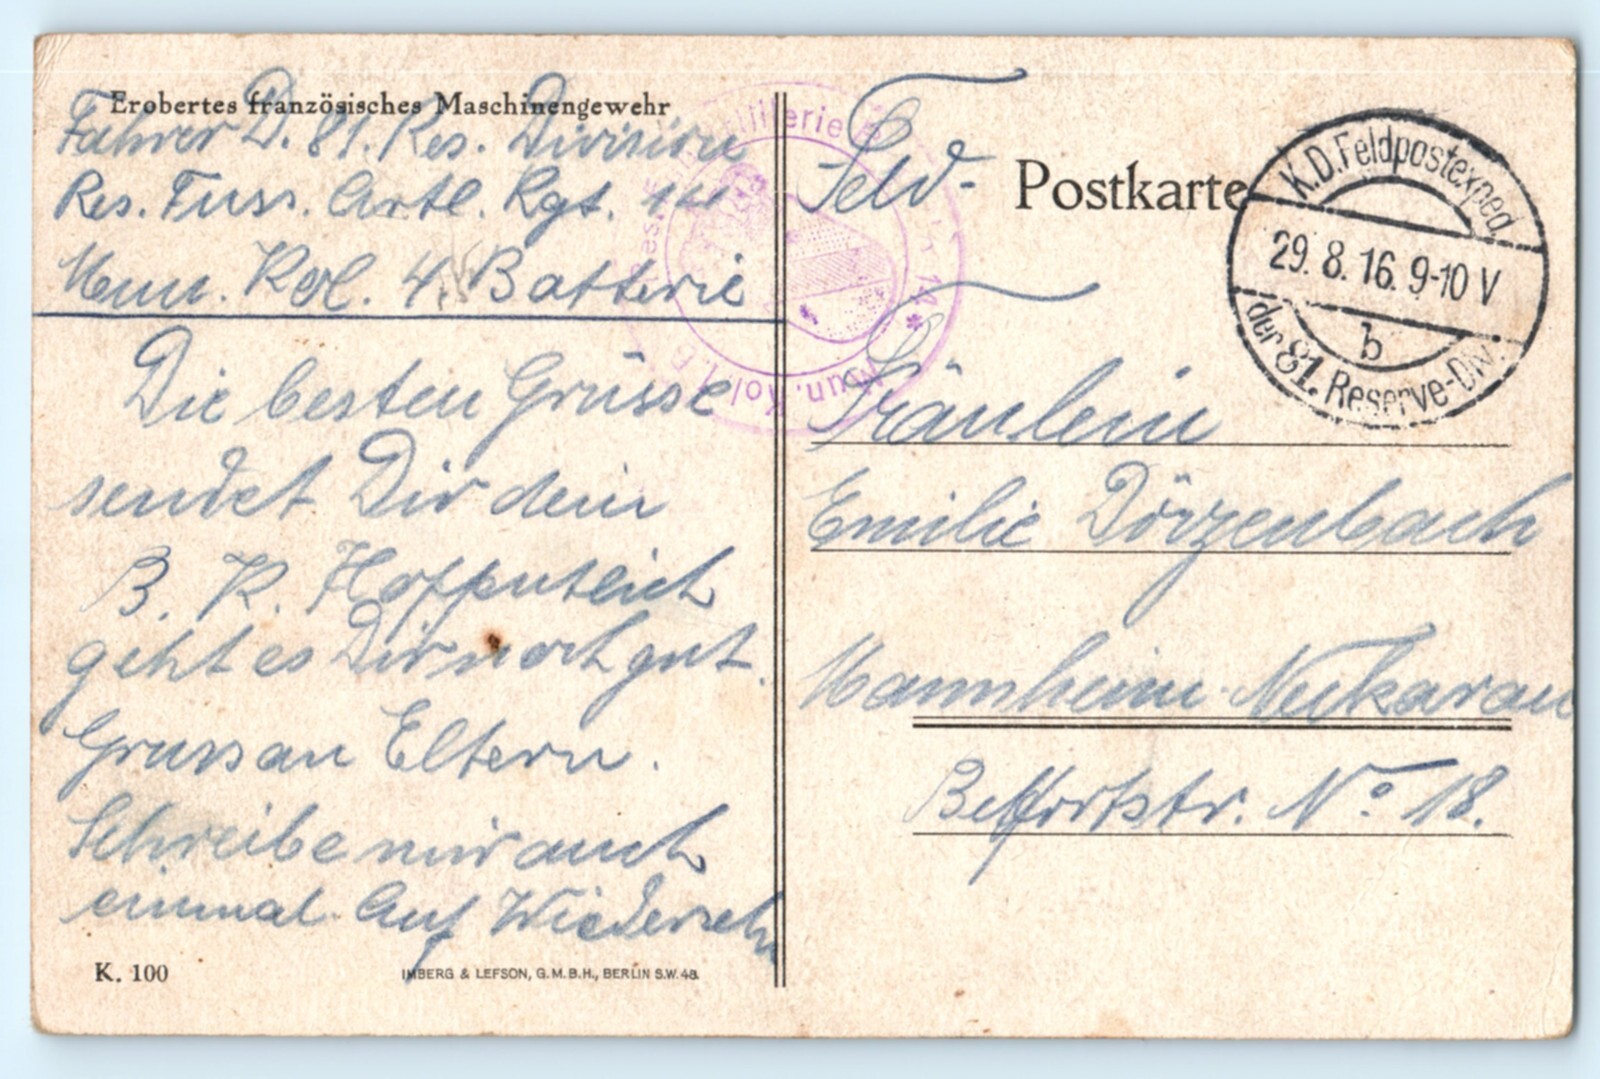 Erobertes französisches Maschinengewehr
Fahrer D. 81. Res. Division
Res. Fuss. Artl. Rgt. 14
Mun. Kol. 4. Batterie
Die besten Grüsse
sendet Dir dein
B. K. Hoffentlich
geht es Dir noch gut.
Gruss an Eltern.
Schreibe mir auch
einmal. Auf Wiederseh
K. 100
IMBERG & LEFSON, G.M.B.H., BERLIN S.W. 48.
Feld- Postkarte
K.D. Feldpostexped.
29. 8. 16. 9-10 V
b
der 81. Reserve-Div.
14 *
Mun. Kol.
Fräulein
Emilie Dörzenbach
Mannheim-Neckarau
Belfortstr. No 18.